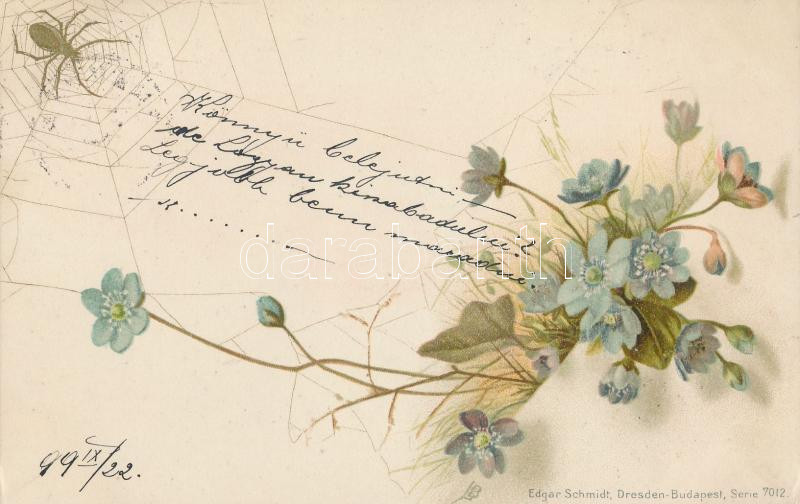 Könnyü belejutni –
de hogyan kiszabadulni?
Legjobb benn maradni.
darabanth
99 IX/22.
Edgar Schmidt, Dresden-Budapest, Serie 7012.